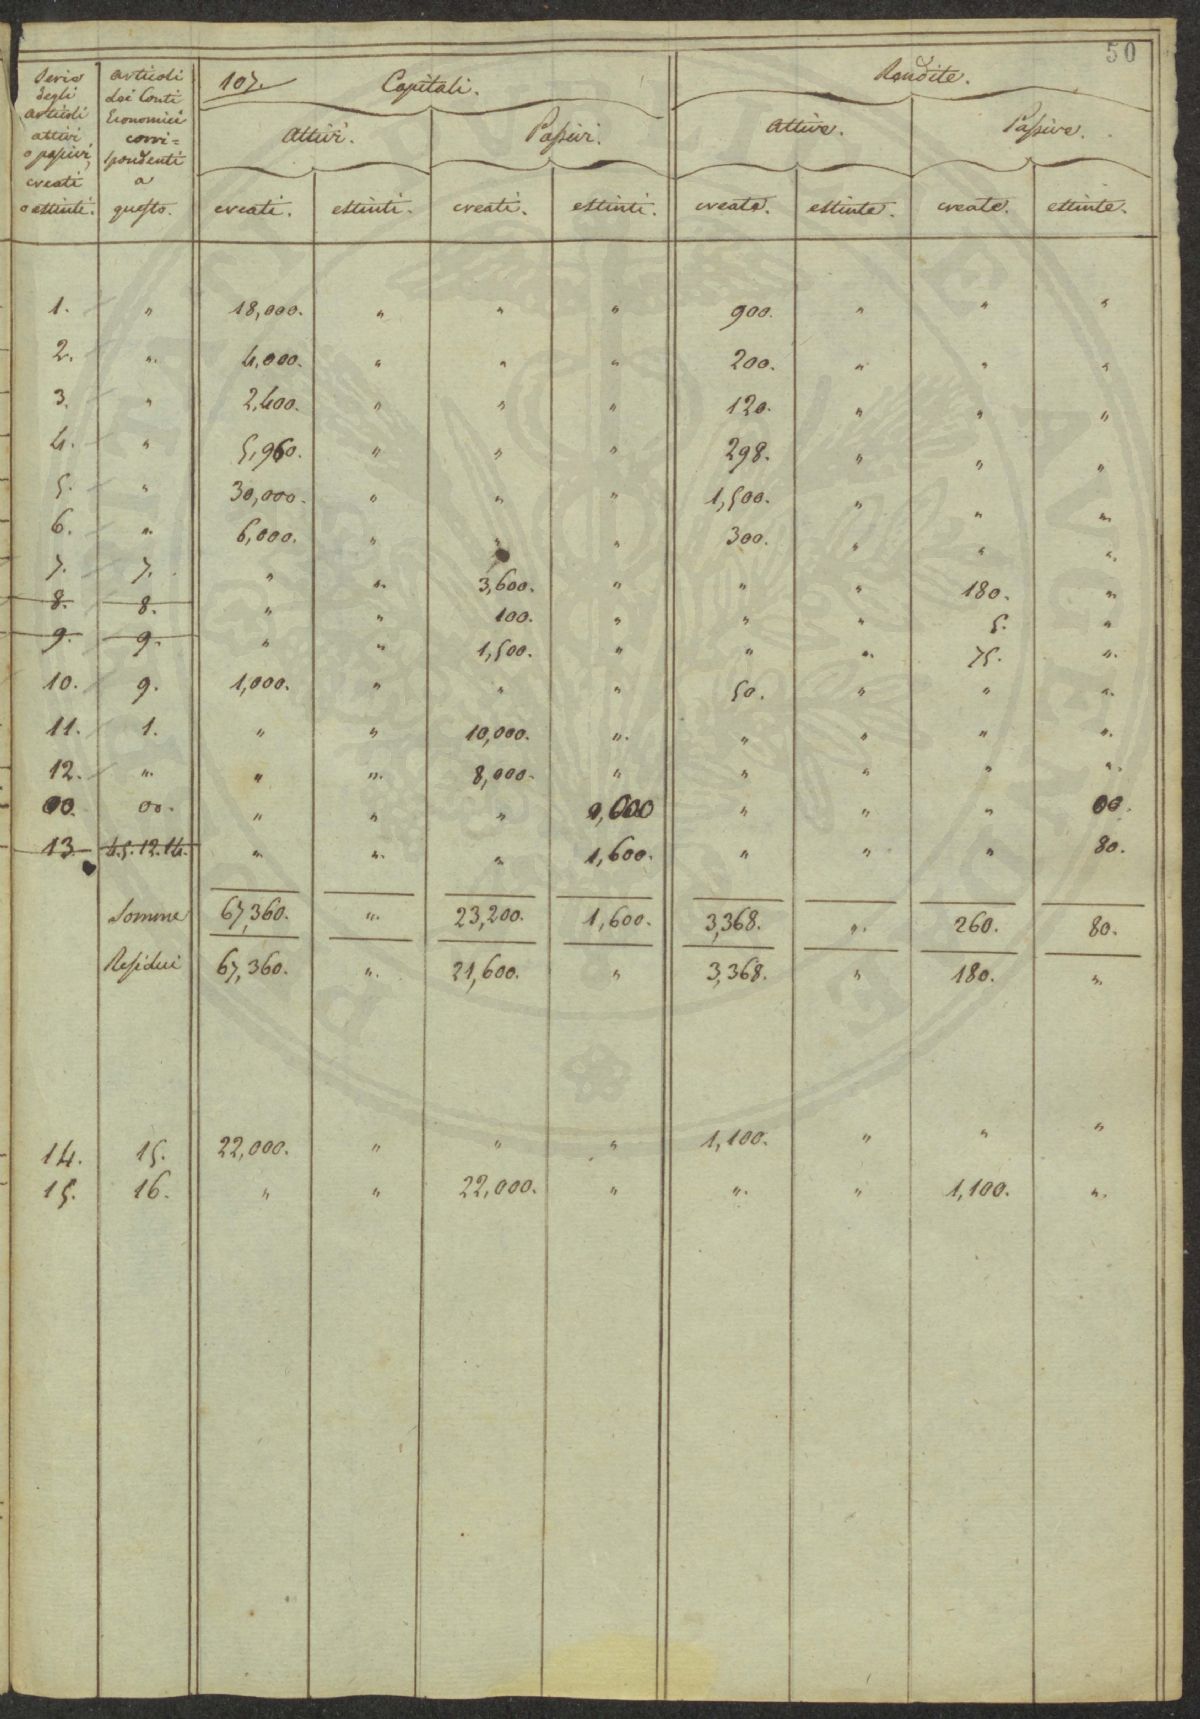 50
107. Capitali. Rendite.
Serie degli articoli attivi o passivi, creati o estinti.
Articoli dei Conti Economici corrispondenti a questo.
Attivi. Passivi. Attive. Passive.
creati. estinti. creati. estinti. create. estinte. create. estinte.
1. " 18,000. " " " 900. " " "
2. " 4,000. " " " 200. " " "
3. " 2,400. " " " 120. " " "
4. " 5,960. " " " 298. " " "
5. " 30,000. " " " 1,500. " " "
6. " 6,000. " " " 300. " " "
7. 7. " " 3,600. " " " 180. "
8. 8. " " 100. " " " 5. "
9. 9. " " 1,500. " " " 75. "
10. 9. 1,000. " " " 50. " " "
11. 1. " " 10,000. " " " " "
12. " " " 8,000. " " " " "
00. 00. " " " 0,000 " " " 00.
13 4.5.12.14. " " " 1,600. " " " 80.
Somme 67,360. " 23,200. 1,600. 3,368. " 260. 80.
Residui 67,360. " 21,600. " 3,368. " 180. "
14. 15. 22,000. " " " 1,100. " " "
15. 16. " " 22,000. " " " 1,100. "